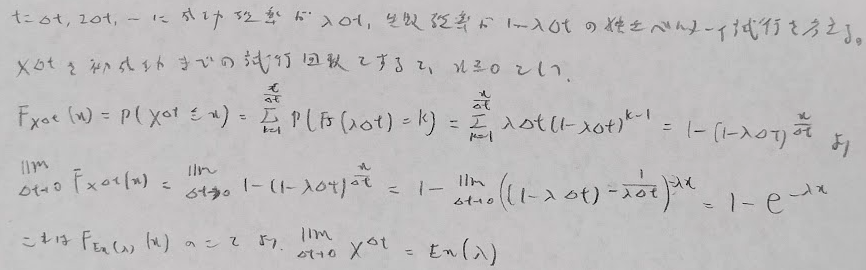 t=Δt, 2Δt, … に成功確率が λΔt, 失敗確率が 1-λΔt の独立ベルヌーイ試行を考える。
X^Δt を初成功までの試行回数とすると, x≥0 として.
F_{X^Δt}(x) = P(X^Δt ≤ x) = Σ_{k=1}^{x/Δt} P(Fs(λΔt) = k) = Σ_{k=1}^{x/Δt} λΔt(1-λΔt)^{k-1} = 1-(1-λΔt)^{x/Δt} より
lim_{Δt→0} F_{X^Δt}(x) = lim_{Δt→0} 1-(1-λΔt)^{x/Δt} = 1 - lim_{Δt→0} ((1-λΔt)^{-1/λΔt})^{-λx} = 1 - e^{-λx}
これは F_{Ex(λ)}(x) のことより. lim_{Δt→0} X^Δt = Ex(λ)